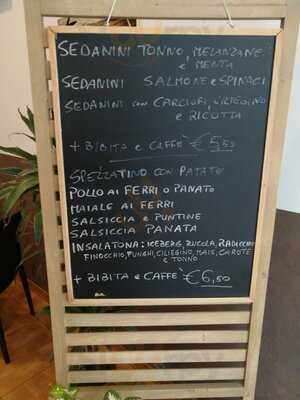 SEDANINI TONNO, MELANZANE
e MENTA
SEDANINI SALMONE e SPINACI
SEDANINI CON CARCIOFI, CILIEGINO
e RICOTTA
+ BIBITA e CAFFÈ € 5,50
SPEZZATINO CON PATATE
POLLO AI FERRI O PANATO
MAIALE AI FERRI
SALSICCIA e PUNTINE
SALSICCIA PANATA
INSALATONA: ICEBERG, RUCOLA, RADICCHIO
FINOCCHIO, FUNGHI, CILIEGINO, MAIS, CAROTE
e TONNO
+ BIBITA e CAFFÈ € 6,50